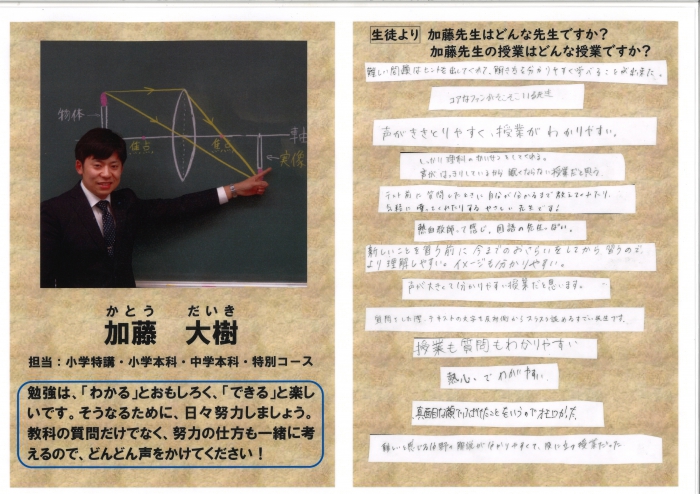 物体
焦点
焦点
実像
かとう　だいき
加藤　大樹
担当：小学特講・小学本科・中学本科・特別コース
勉強は、「わかる」とおもしろく、「できる」と楽し
いです。そうなるために、日々努力しましょう。
教科の質問だけでなく、努力の仕方も一緒に考
えるので、どんどん声をかけてください！
生徒より 加藤先生はどんな先生ですか？
加藤先生の授業はどんな授業ですか？
難しい問題はヒントを出してくれて、
コアなファンがそこそこいる先生
声がききとりやすく、授業がわかりやすい。
声がはっきりしているから眠くならない授業だと思う
テスト前に質問したときに自分が分かるまで教えてくれたり、
気軽に やさしい先生です！
熱血教師って感じ、国語の先生っぽい。
新しいことを習う前に今までのおさらいをしてから習うので、
より理解しやすい。イメージも分かりやすい。
声が大きくて分かりやすい授業だと思います。
質問をした際、テキストの文字を反対側からスラスラ読めるすごい先生です。
授業も質問もわかりやすい
熱心で わかりやすい。
真面目な顔で
難しいと感じる分野も 分かりやすくて、役に立つ授業だった